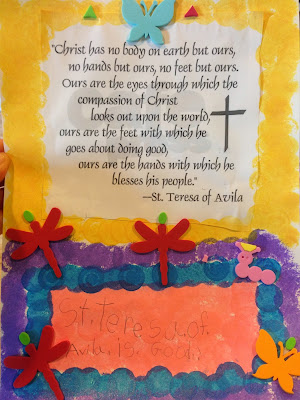 "Christ has no body on earth but ours,
no hands but ours, no feet but ours.
Ours are the eyes through which the
compassion of Christ
looks out upon the world,
ours are the feet with which he
goes about doing good,
ours are the hands with which he
blesses his people."
—St. Teresa of Avila
St. Teresa of
Avila is Good